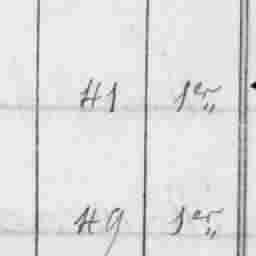 41 1er
49 1er